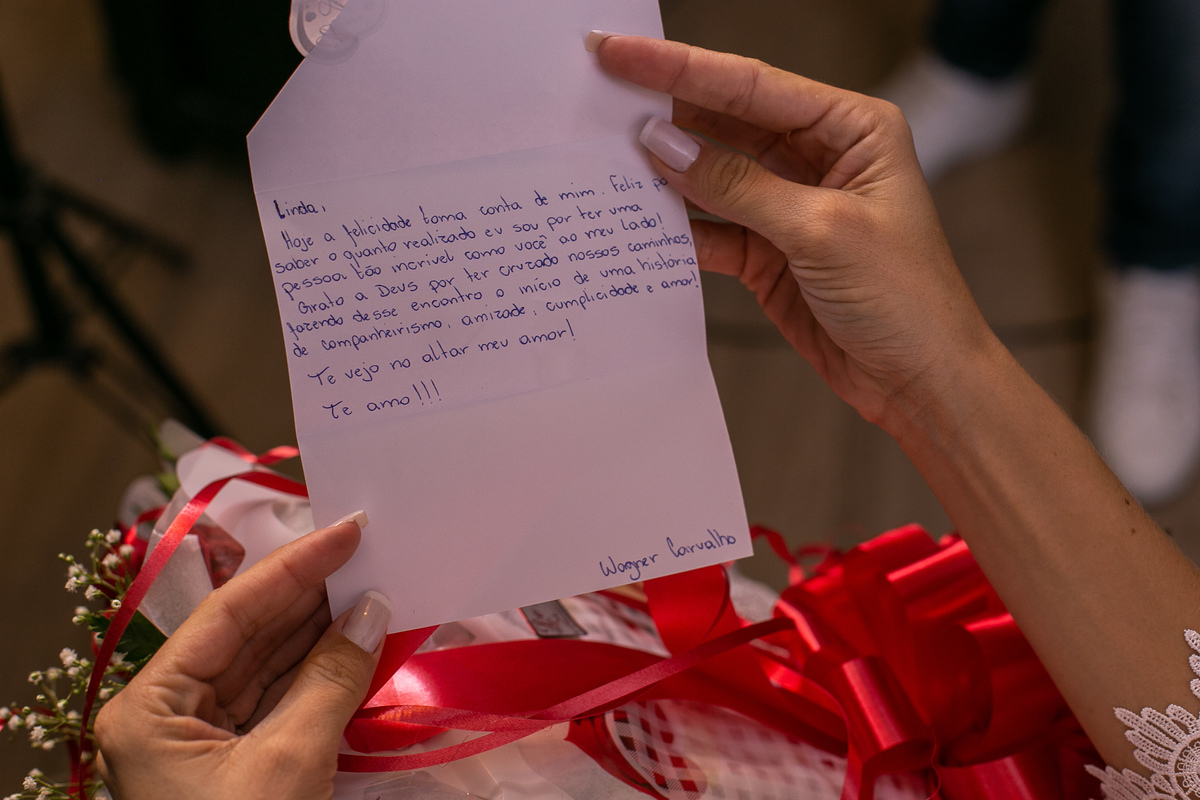 Linda,
Hoje a felicidade toma conta de mim. Feliz po
saber o quanto realizado eu sou por ter uma
pessoa tão incrível como você ao meu lado!
Grato a Deus por ter cruzado nossos caminhos,
fazendo desse encontro o início de uma história
de companheirismo, amizade, cumplicidade e amor!
Te vejo no altar meu amor!
Te amo!!!
Wagner Carvalho